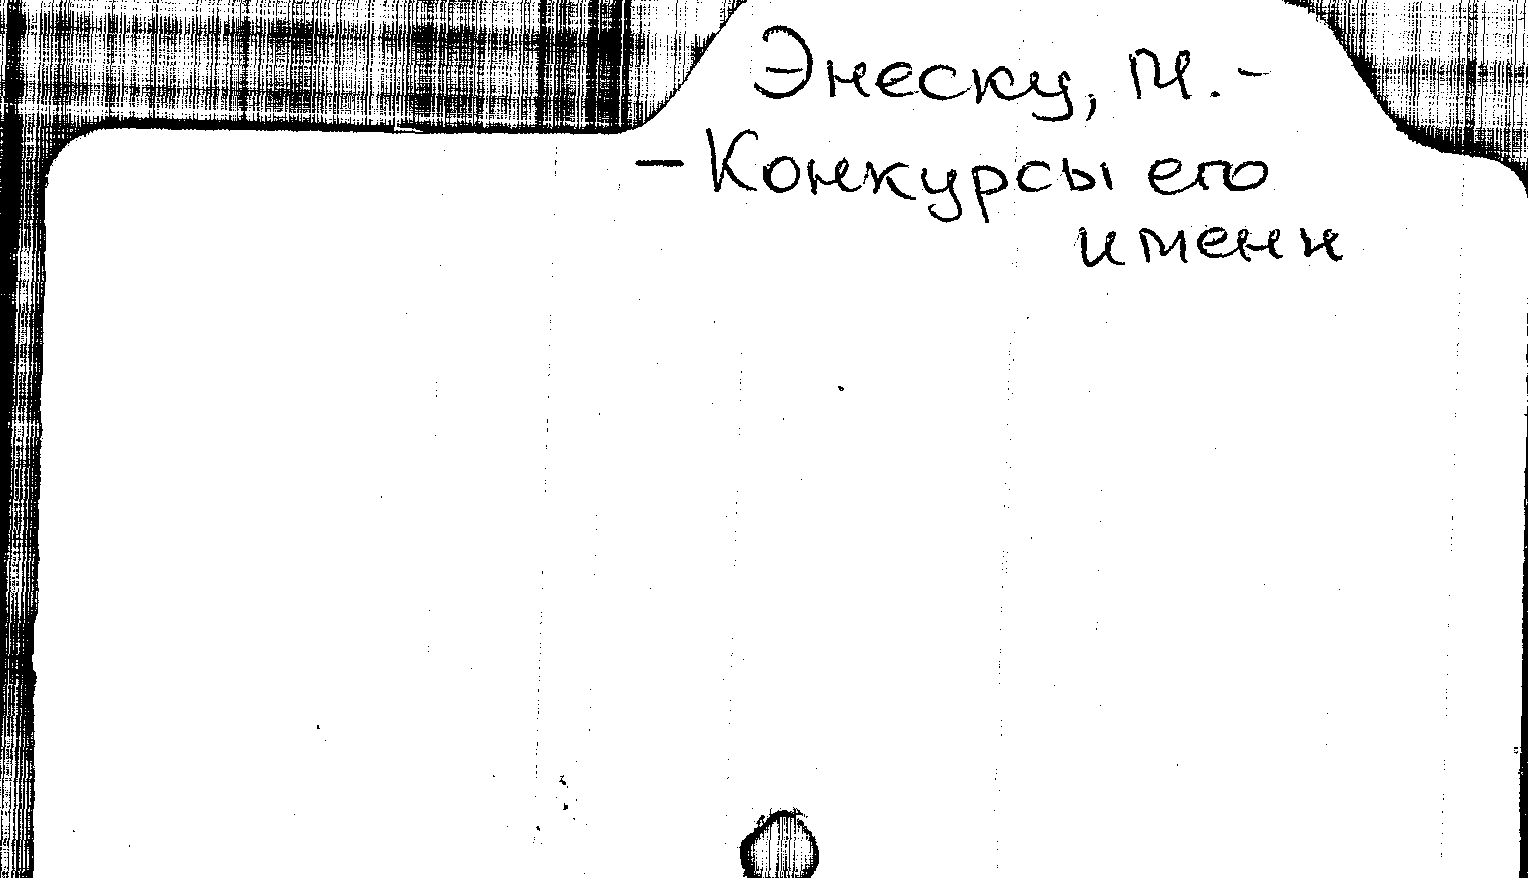 Энеску, М. -
- Конкурсы его
имени